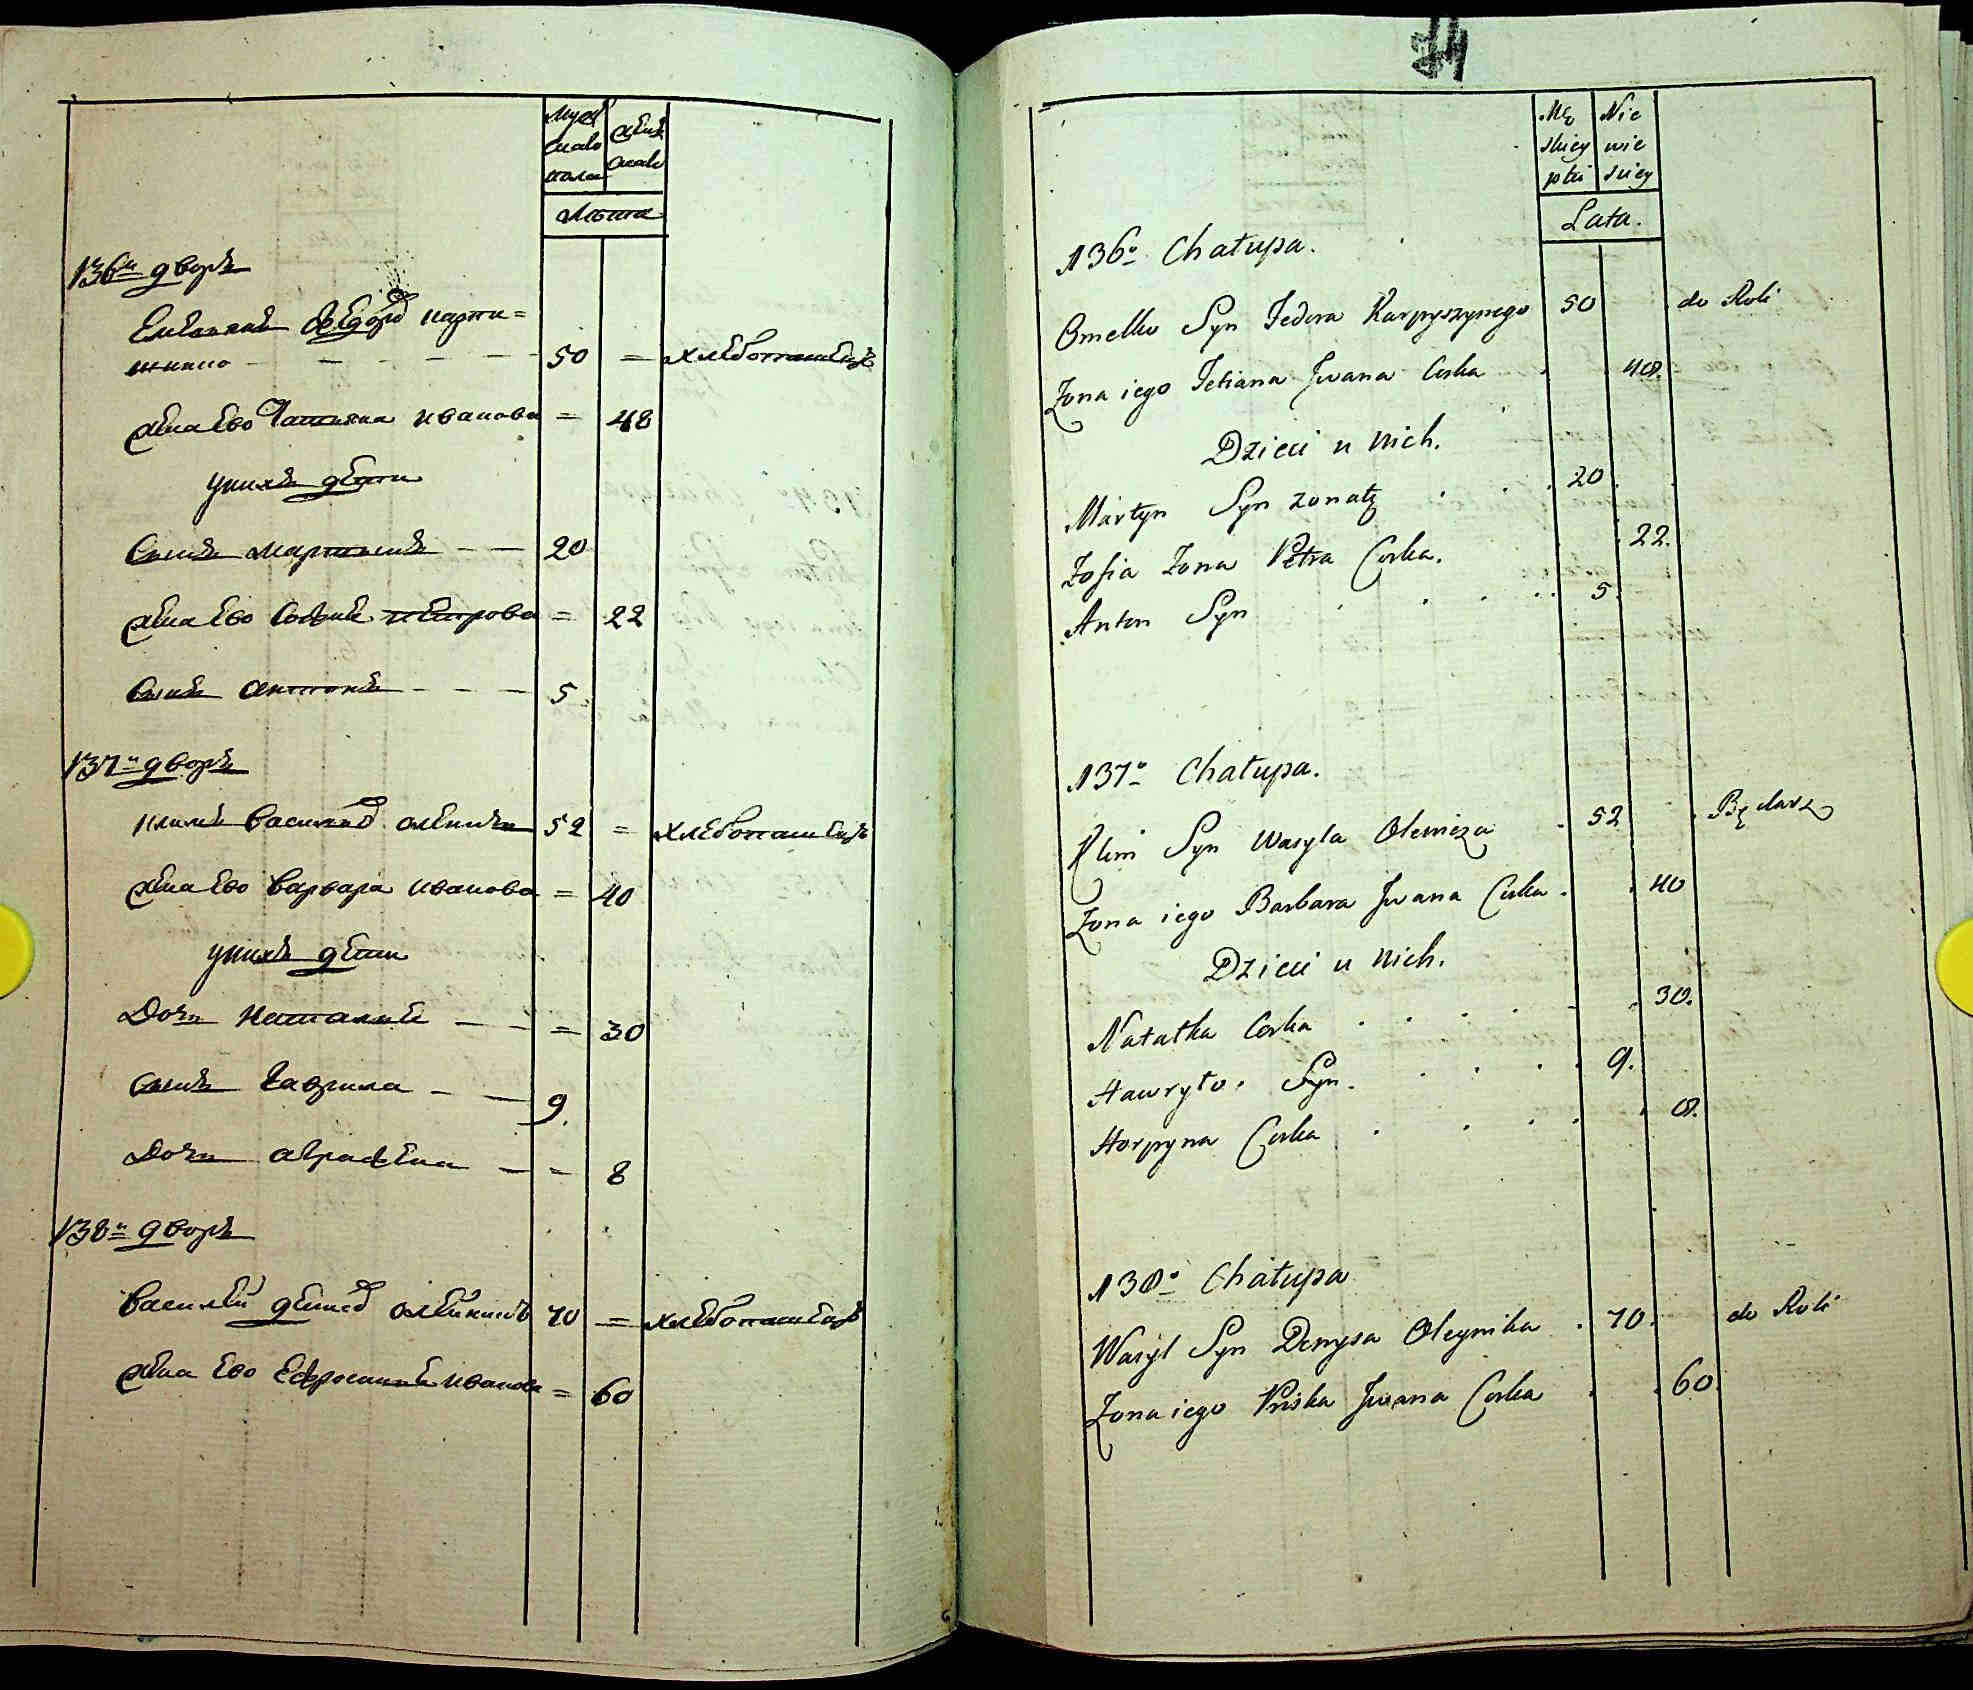 Муж
ска
пола
жен
ска
Лѣта
136й дворъ
Емелиянъ Федоров карпи=
шинко - - - 50 = хлѣбопашецъ
жена Ево Татияна иванова = 48
у нихъ дѣти
Сынъ мартинъ - - 20
жена Ево София петрова = 22
Сынъ антонъ - - - 5
137й дворъ
климъ васильев 52 = хлѣбопашецъ
жена Ево варвара иванова = 40
у нихъ дѣти
Дочь наталия - - = 30
Сынъ гаврила - - 9.
Дочь аграфена - - 8
138й дворъ
василей денисов олейникъ 70 = хлѣбопашецъ
жена Ево Ефросиния иванова = 60
Mę
skiey
płci
Nie
wie
sciey
Lata.
136o Chałupa.
Omelko Syn Fedora Karpyszynego 50 do Roli
Zona iego Tetiana Jwana Corka 48.
Dzieci u nich.
Martyn Syn zonaty 20.
Zofia Zona Petra Corka. 22.
Anton Syn 5.
137o Chałupa.
Klim Syn Wasyla 52 Bednarz
Zona iego Barbara Jwana Corka. 40
Dzieci u nich.
Natałka Corka 30.
Hawryło. Syn. 9.
Horpyna Corka 8.
138o Chałupa
Wasyl Syn Denysa Oleynika 70. do Roli
Zona iego Pryska Jwana Corka 60.